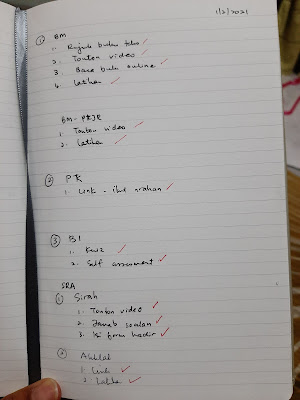 1/2/2021
① BM
1. Rujuk buku teks ✓
2. Tonton video ✓
3. Baca buku online ✓
4. Latihan ✓
BM - PKJR
1. Tonton video ✓
2. Latihan ✓
② PK
1. Link - ikut arahan ✓
③ BI
1. Kuiz ✓
2. Self assessment ✓
SRA
① Sirah
1. Tonton video ✓
2. Jawab soalan ✓
3. Isi form hadir ✓
② Akhlak
1. Link ✓
2. Latihan ✓